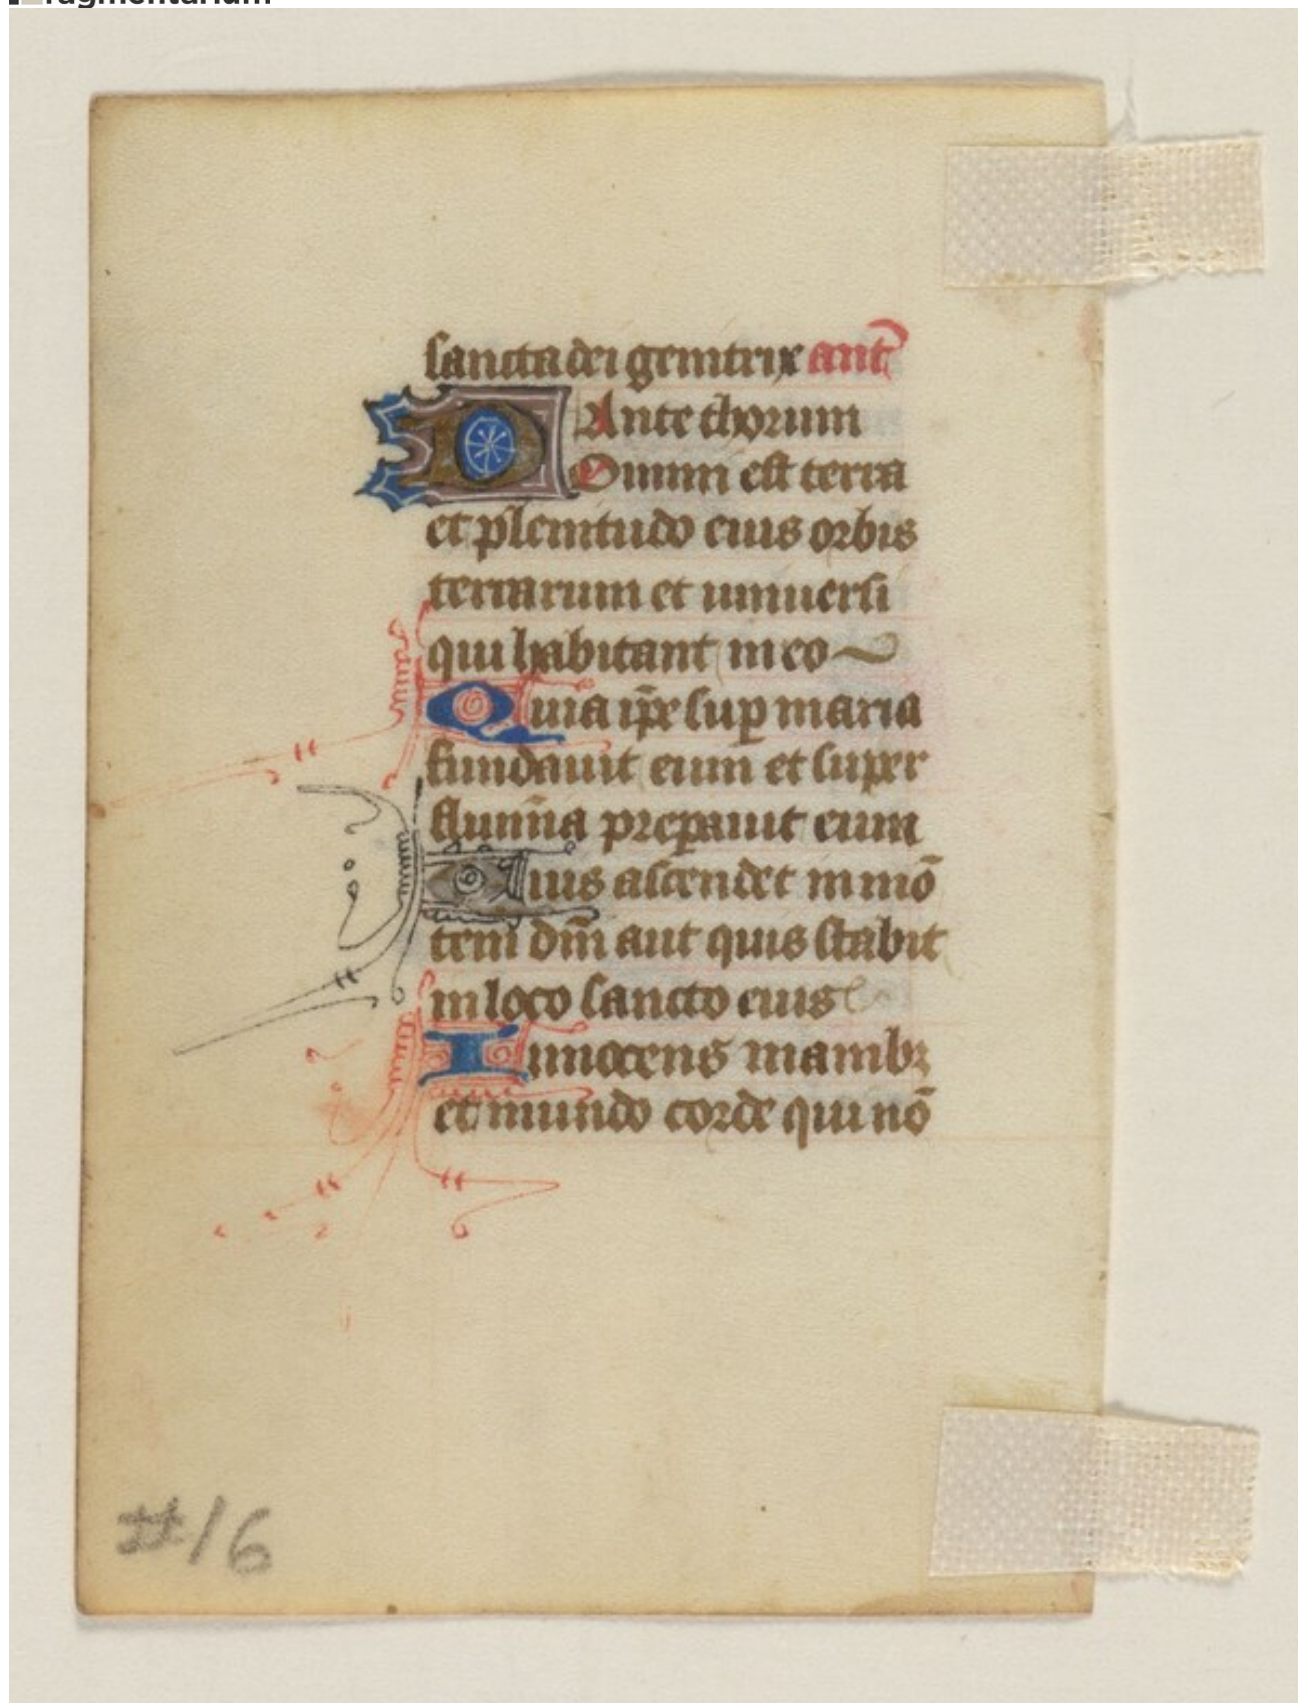 ragmentarium
sancta dei genitrix ant̄
Ante thorum
DOmini est terra
et plenitudo eius orbis
terrarum et uniuersi
qui habitant in eo
Quia ip̄e sup̱ maria
fundauit eum et super
flumīa preparauit eum
Quis ascendet in mō
tem dn̄i aut quis stabit
in loco sancto eius
Innocens manibꝫ
et mundo corde qui nō
#16